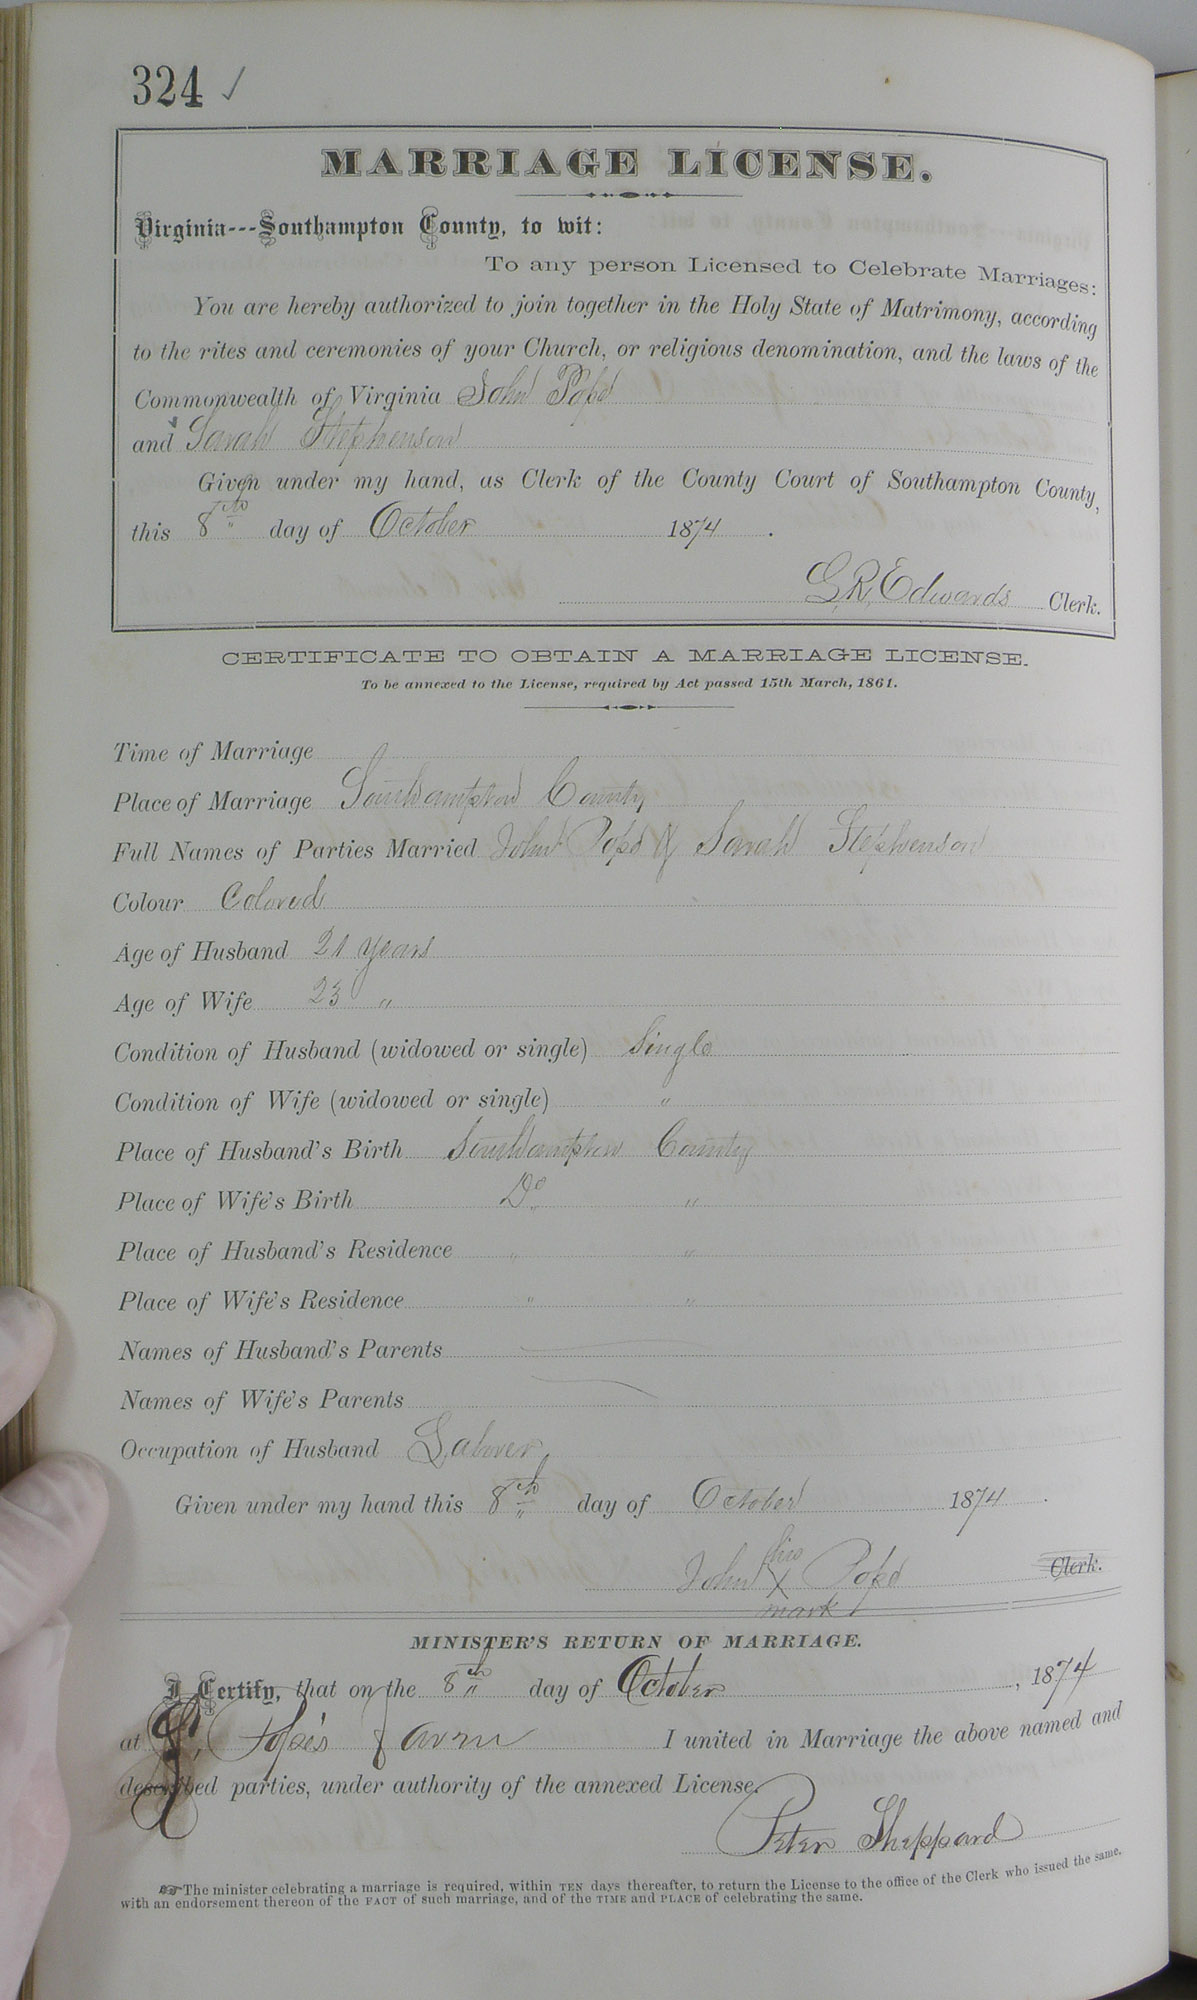 324 ✓
MARRIAGE LICENSE.
Virginia---Southampton County, to wit:
To any person Licensed to Celebrate Marriages:
You are hereby authorized to join together in the Holy State of Matrimony, according
to the rites and ceremonies of your Church, or religious denomination, and the laws of the
Commonwealth of Virginia John Pope
and Sarah Stephenson
Given under my hand, as Clerk of the County Court of Southampton County,
this 8th day of October 1874 .
G.R. Edwards Clerk.
CERTIFICATE TO OBTAIN A MARRIAGE LICENSE.
To be annexed to the License, required by Act passed 15th March, 1861.
Time of Marriage
Place of Marriage Southampton County
Full Names of Parties Married John Pope & Sarah Stephenson
Colour Colored
Age of Husband 21 years
Age of Wife 23 "
Condition of Husband (widowed or single) Single
Condition of Wife (widowed or single) "
Place of Husband's Birth Southampton County
Place of Wife's Birth Do "
Place of Husband's Residence " "
Place of Wife's Residence " "
Names of Husband's Parents
Names of Wife's Parents
Occupation of Husband Laborer
Given under my hand this 8th day of October 1874 .
John his X mark Pope Clerk.
MINISTER'S RETURN OF MARRIAGE.
I Certify, that on the 8th day of October , 1874
at Pope's farm I united in Marriage the above named and
described parties, under authority of the annexed License.
Peter Sheppard
☞The minister celebrating a marriage is required, within TEN days thereafter, to return the License to the office of the Clerk who issued the same,
with an endorsement thereon of the FACT of such marriage, and of the TIME and PLACE of celebrating the same.